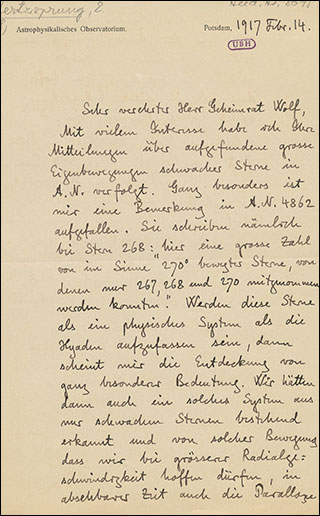 Astrophysikalisches Observatorium.
Potsdam, 1917 Febr. 14.
UBH
Sehr verehrter Herr Geheimrat Wolf,
Mit vielem Interesse habe ich Ihre
Mitteilungen über aufgefundene grosse
Eigenbewegungen schwacher Sterne in
A.N. verfolgt. Ganz besonders ist
mir eine Bemerkung in A.N. 4862
aufgefallen. Sie schreiben nämlich
bei Stern 268: hier eine grosse Zahl
von im Sinne "270° bewegter Sterne, von
denen nur 267, 268 und 270 mitgenommen
werden konnten". Werden diese Sterne
als ein physisches System als die
Hyaden aufzufassen sein, dann
scheint mir die Entdeckung von
ganz besonderer Bedeutung. Wir hätten
dann auch ein solches System aus
nur schwachen Sternen bestehend
erkannt und von solcher Bewegung
dass wir bei grösserer Radialge=
schwindigkeit hoffen dürfen, in
absehbarer Zeit auch die Parallaxe